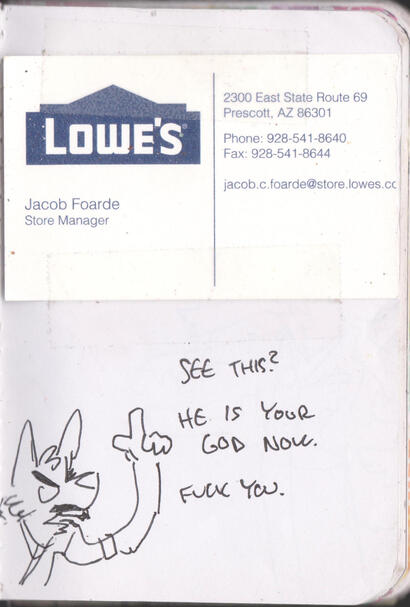 LOWE'S
Jacob Foarde
Store Manager
2300 East State Route 69
Prescott, AZ 86301
Phone: 928-541-8640
Fax: 928-541-8644
jacob.c.foarde@store.lowes.cc
SEE THIS?
HE IS YOUR
GOD NOW.
FUCK YOU.